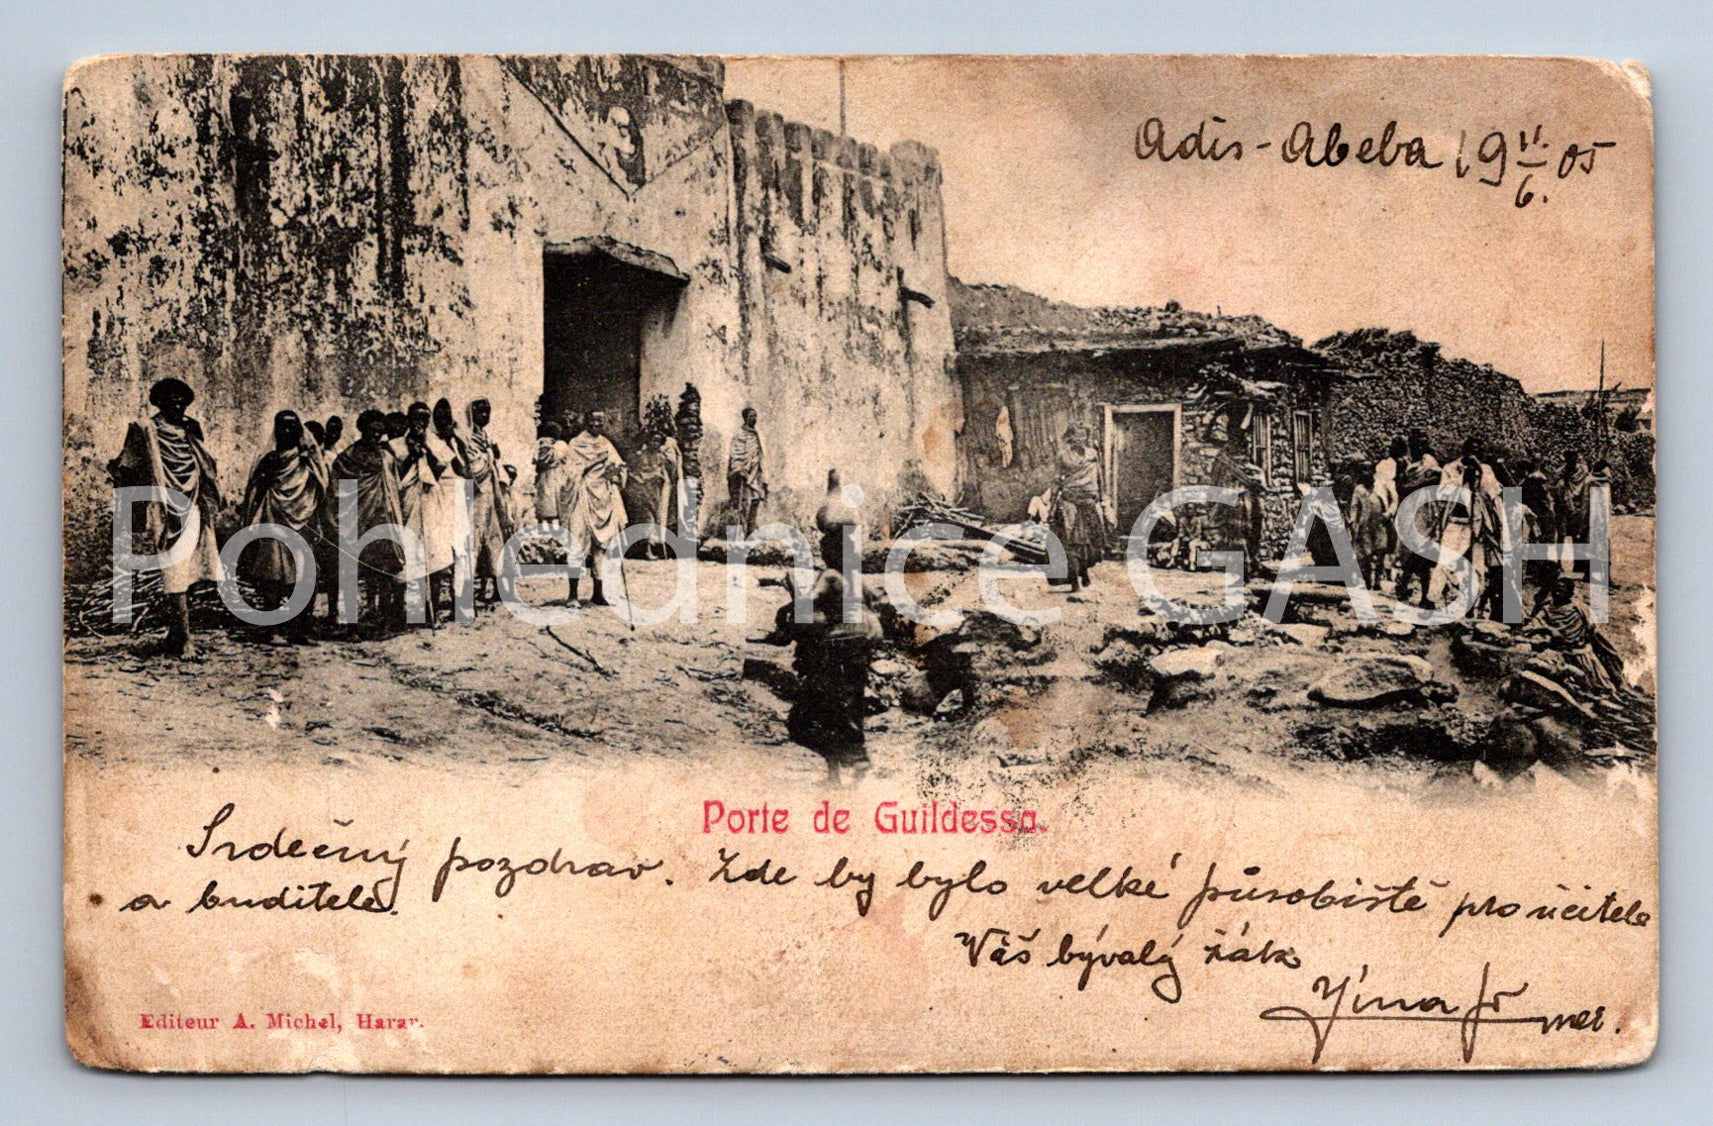 Adis-Abeba 19 11./6. 05
Pohlednice GASH
Porte de Guildessa.
Srdečný pozdrav. Zde by bylo velké působiště pro učitele
a buditele.
Váš bývalý žák
Editeur A. Michel, Harar.